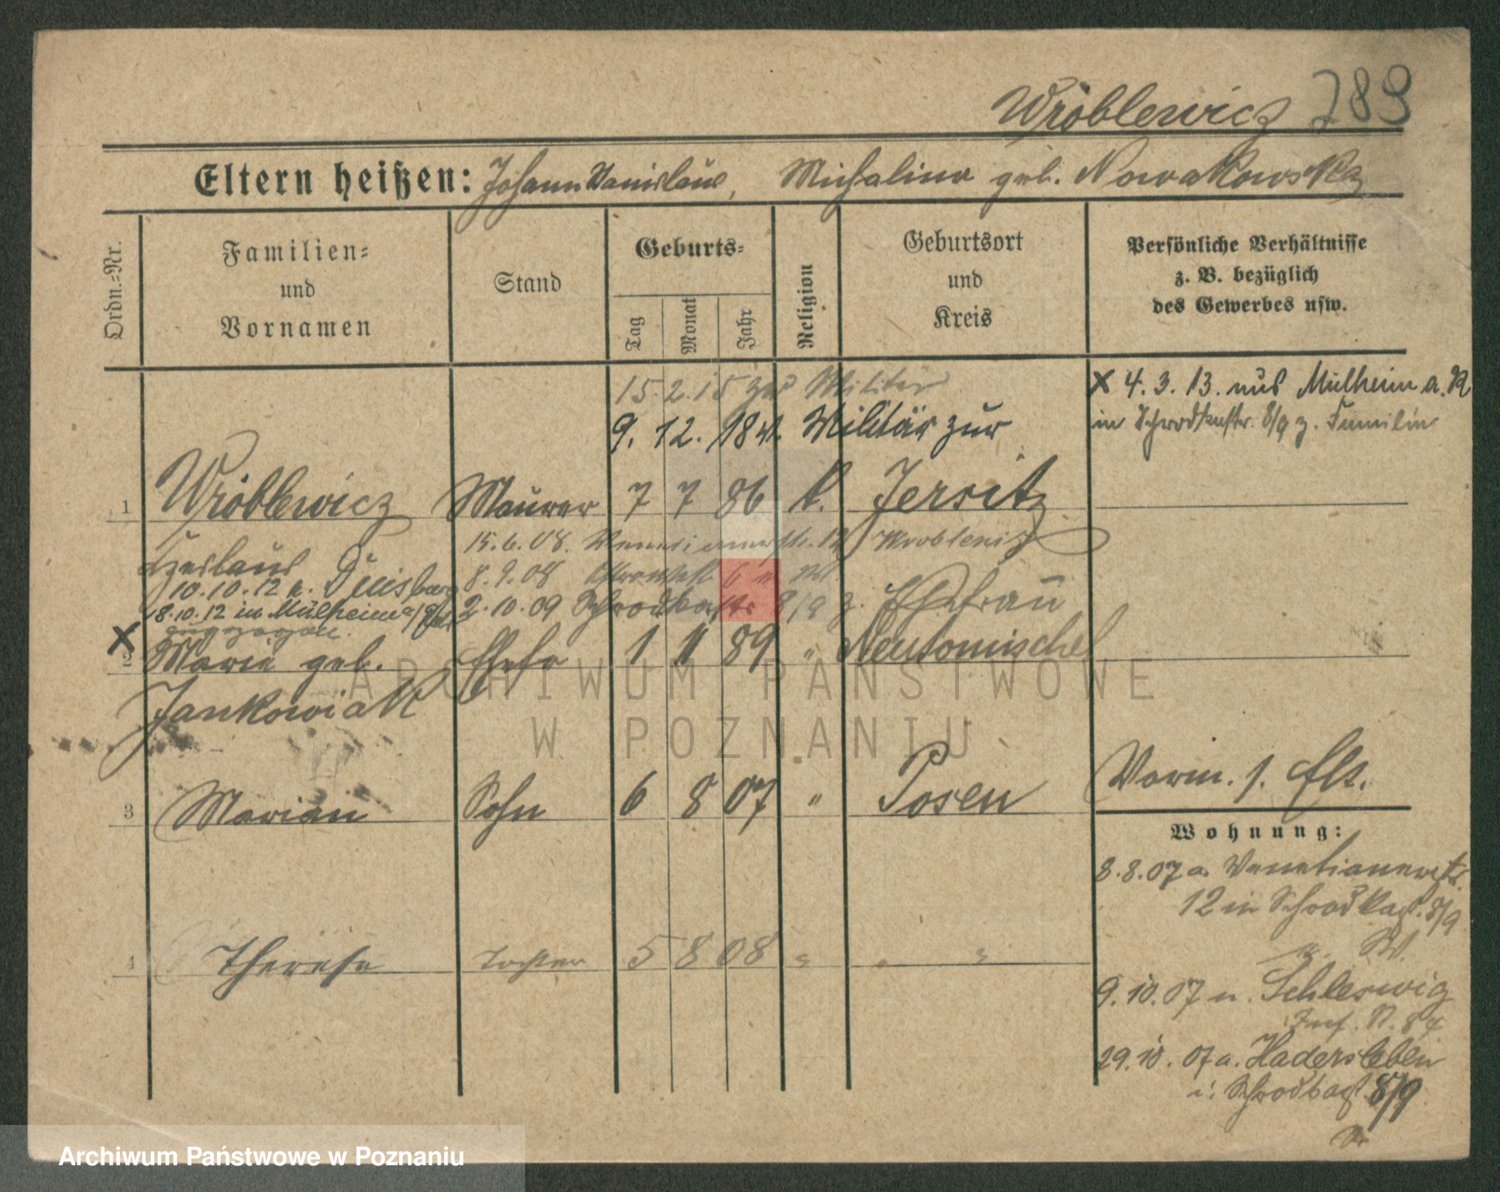 Wróblewicz 789
Eltern heißen: Johann Stanislaus, Michalina geb. Nowakowska
Ordn.-Nr.
Familien-
und
Vornamen
Stand
Geburts-
Tag
Monat
Jahr
Religion
Geburtsort
und
Kreis
Persönliche Verhältnisse
z. B. bezüglich
des Gewerbes usw.
15. 2. 15 zum Militär
9. 12. Militär zur
x 4. 3. 13. aus Mülheim a. R
in Schrodkastr. 8/9 z. Familie
1 Wróblewicz Maurer 7 7 86 k. Jersitz
Czeslaus
15.6.08. Venetianerstr. 12
10.10.12 n. Duisburg
8.9.08
18.10.12 in Mülheim a/Ruhr
zugezogen.
2.10.09 Schrodkastr 8/9 z. Ehefrau
x
2 Marie geb. Ehefr 1 11 89 " Neutomischel
Jankowiak
3 Marian Sohn 6 8 07 " Posen
Vorm. 1. Els.
Wohnung:
8.8.07 a. Venetianerstr.
12 in Schrodkast. 8/9
4 Therese Tochter 5 8 08 " "
9.10.07 n. Schleswig
Inf. R. 84
29.10.07 a. Hadersleben
i. Schrodkast. 8/9
ARCHIWUM PAŃSTWOWE
W POZNANIU
Archiwum Państwowe w Poznaniu